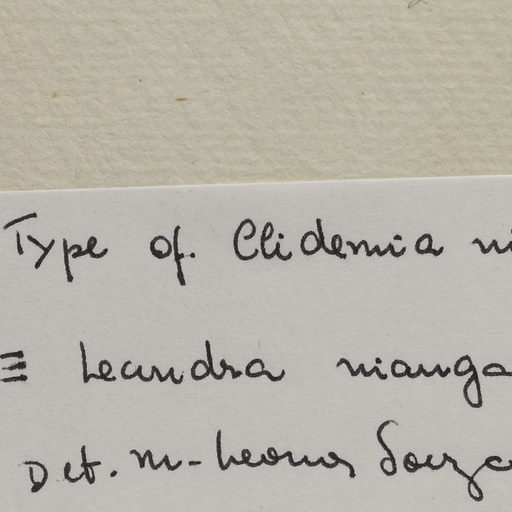 Type of. Clidemia ni
≡ Leandra nianga
Det. M-Leonor Souza